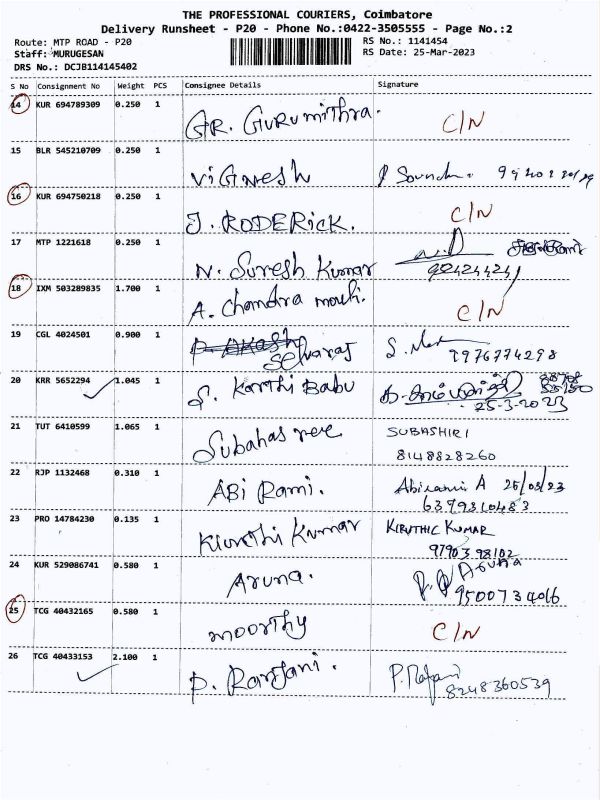 THE PROFESSIONAL COURIERS, Coimbatore
Delivery Runsheet - P20 - Phone No.:0422-3505555 - Page No.:2
Route: MTP ROAD - P20
RS No.: 1141454
Staff: MURUGESAN
RS Date: 25-Mar-2023
DRS No.: DCJB114145402
S No Consignment No Weight PCS Consignee Details Signature
14 KUR 694789309 0.250 1 GR. GURUmithra. C/N
15 BLR 545210709 0.250 1 ViGnesh
16 KUR 694750218 0.250 1 J. RODERICK. C/N
17 MTP 1221618 0.250 1 N. Suresh Kumar
18 IXM 503289835 1.700 1 A. Chandra mouli. C/N
19 CGL 4024501 0.900 1 Selvaraj 9976774298
20 KRR 5652294 1.045 1 S. Karthi Babu
25-3-2023
21 TUT 6410599 1.065 1 Subahas ree SUBASHIRI
8148828260
22 RJP 1132468 0.310 1 ABi Rami. Abirami A 25/03/23
6379810483
23 PRO 14784230 0.135 1 Kiruthi Kumar KIRUTHIC KUMAR
9790398102
24 KUR 529086741 0.580 1 Aruna. Aruna
9500734016
25 TCG 40432165 0.580 1 moorthy C/N
26 TCG 40433153 2.100 1 P. Ranjani. P. Rajani
8248360539